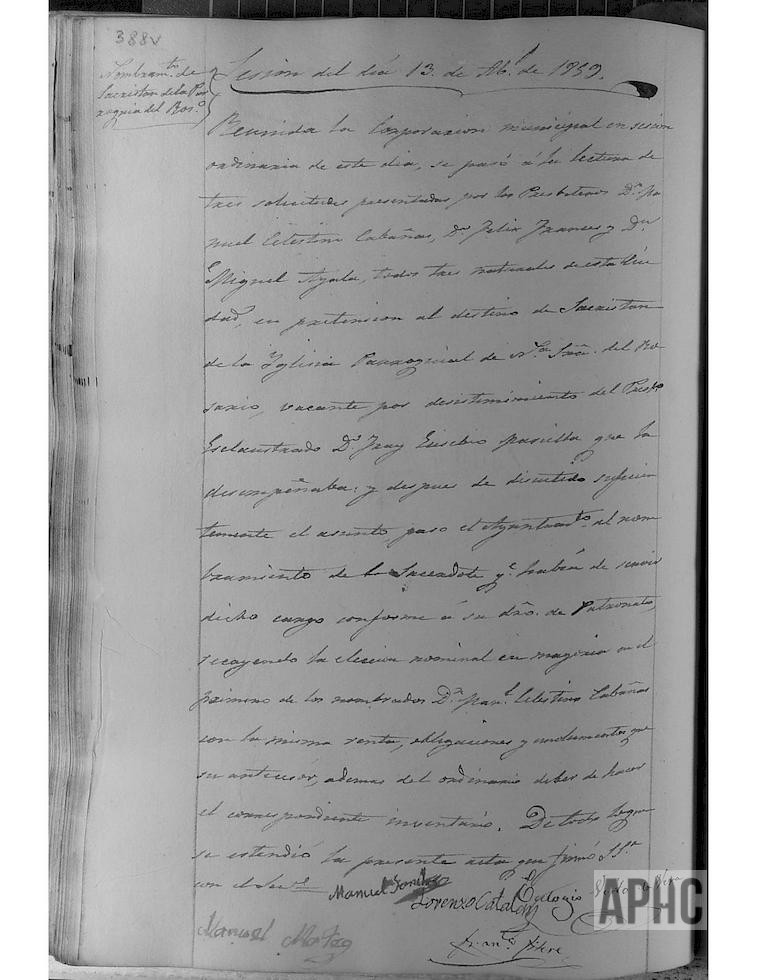 388v
Nombramto. de
Sacristan de la Par
roquia del Rosº.
Sesion del dia 13. de Abl. de 1859.
Reunida la Corporacion municipal en sesion
ordinaria de este dia, se pasó á la lectura de
tres solicitudes presentadas por los Presbiteros Dn. Ma
nuel Celestino Cabañas, Dn. Felix Frances y Dn.
Miguel Ayala, todos tres naturales de esta Ciu
dad, en pretension al destino de Sacristan
de la Yglesia Parroquial de Ntra. Sra. del Ro
sario, vacante por desistimiento del Presbo.
Esclaustrado Dn. Fray Eusebio que la
desempeñaba: y despues de discutido suficien
temente el asunto, paso el Ayuntamto. al nom
bramiento de Sacerdote qe. habia de servir
dicho cargo conforme á su dro. de Patronato,
recayendo la eleccion nominal en mayoria en el
primero de los nombrados Dn. Manl. Celestino Cabañas
con la misma renta, obligaciones y emolumentos que
su antecesor, ademas del ordinario deber de hacer
el correspondiente inventario. De todo lo que
se estendió la presente acta que firmó SSa.
con el Secro.
Manuel Sanchez
Lorenzo Catalan
Eulogio
Manuel
Franco.
APHC